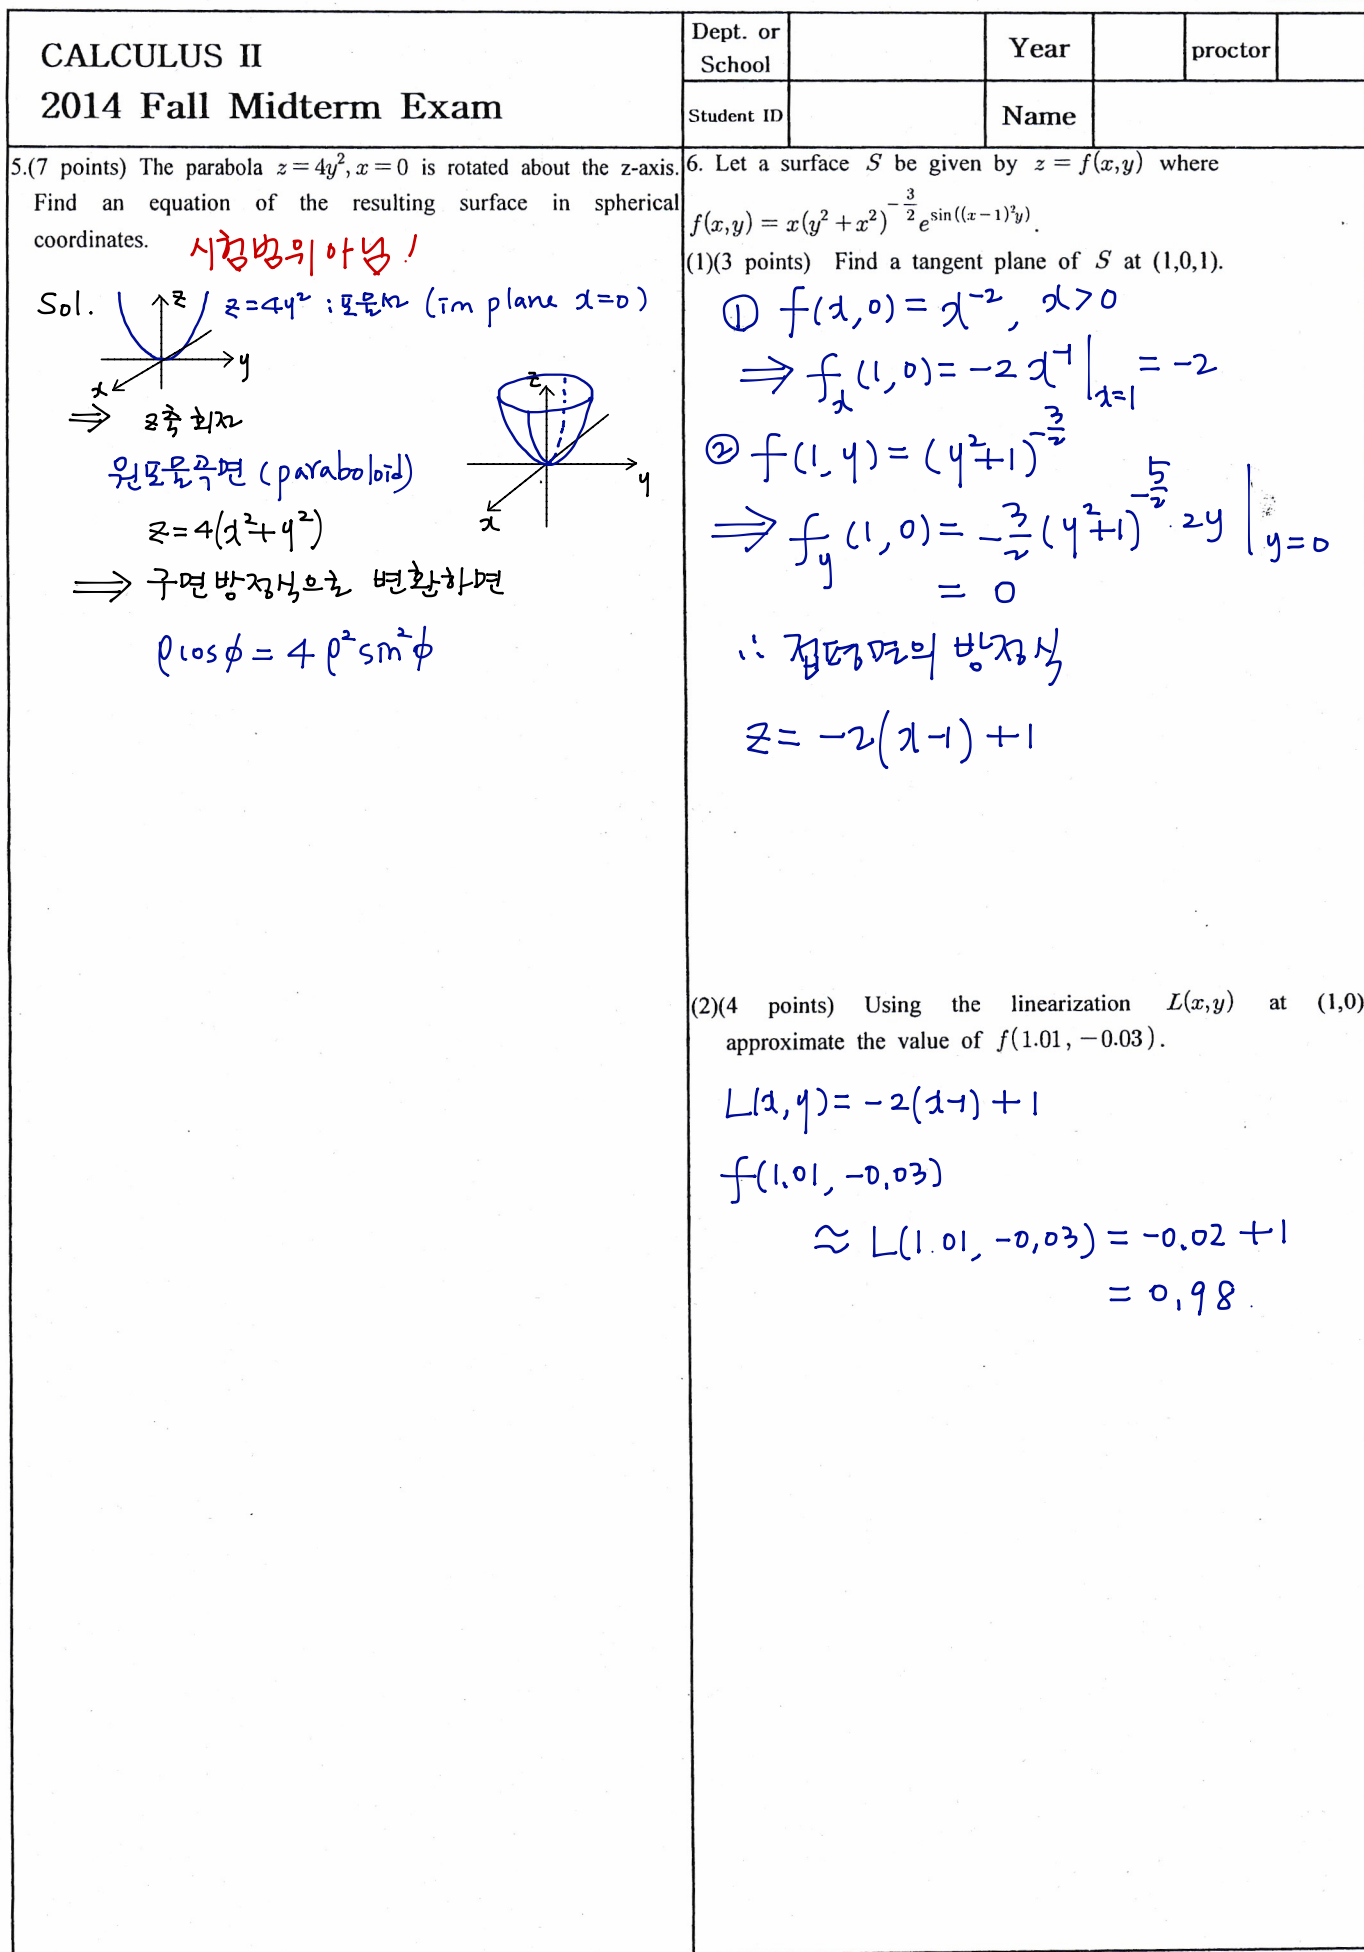 CALCULUS II
2014 Fall Midterm Exam
Dept. or School
Year
proctor
Student ID
Name
5.(7 points) The parabola z=4y², x=0 is rotated about the z-axis.
Find an equation of the resulting surface in spherical
coordinates.
시험범위아님!
Sol.
z
y
x
z=4y² : 포물선 (in plane x=0)
⇒ z축 회전
z
y
x
원포물곡면 (paraboloid)
z=4(x²+y²)
⇒ 구면방정식으로 변환하면
ρcosϕ = 4ρ²sin²ϕ
6. Let a surface S be given by z = f(x,y) where
f(x,y) = x(y²+x²)^{-3/2} e^{sin((x-1)²y)}.
(1)(3 points) Find a tangent plane of S at (1,0,1).
① f(x,0) = x⁻², x>0
⇒ f_x(1,0) = -2x⁻¹|_{x=1} = -2
② f(1,y) = (y²+1)^{-3/2}
⇒ f_y(1,0) = -3/2 (y²+1)^{-5/2} · 2y |_{y=0}
= 0
∴ 접평면의 방정식
z = -2(x-1)+1
(2)(4 points) Using the linearization L(x,y) at (1,0)
approximate the value of f(1.01, -0.03).
L(x,y) = -2(x-1)+1
f(1.01, -0.03)
≈ L(1.01, -0.03) = -0.02+1
= 0.98.